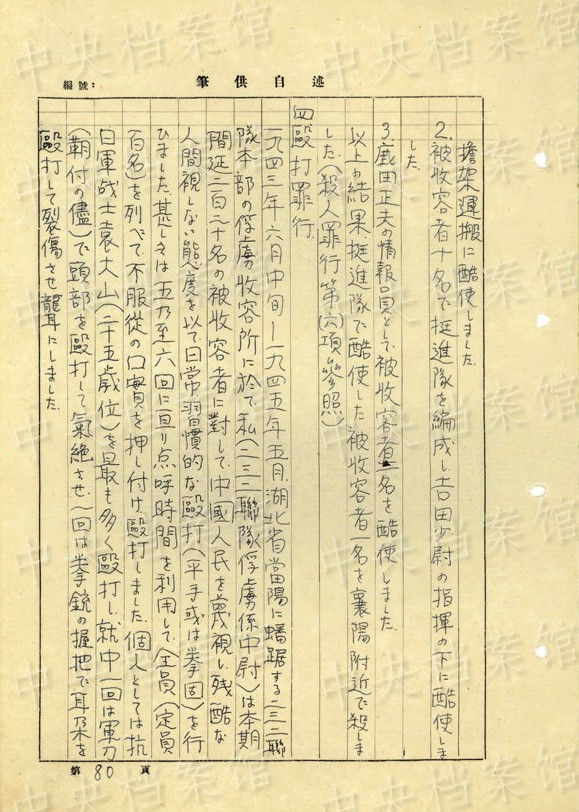 編號：
筆供自述
擔架運搬に酷使しました。
2. 被收容者十名で挺進隊を編成し吉田少尉の指揮の下に酷使しま
した。
3. 鹿田正夫の情報員として被收容者一名を酷使しました。
以上の結果、挺進隊で酷使した被收容者一名を襄陽附近で殺しま
した。(殺人罪行第(六)項参照)
四 毆打罪行.
一九四三年六月中旬—一九四五年五月、湖北省當陽に蟠踞する二三二聯
隊本部の俘虜收容所に於て私(二三二聯隊俘虜係中尉)は本期
間延二百二十名の被收容者に對して、中國人民を蔑視し残酷な
人間視しない態度を以て日常習慣的な毆打(平手或は拳固)を行
ひました。甚しきは五乃至六回に亘り点呼時間を利用して全員(定員
百名)を列べて不服從の口實を押し付け毆打しました。個人としては抗
日軍战士袁大山(二十五歳位)を最も多く毆打し、就中一回は軍刀
(鞘付の儘)で頭部を毆打して氣絶させ、一回は拳銃の握把で耳朶を
毆打して裂傷させ聾にしました。
第 80 頁
中央档案馆